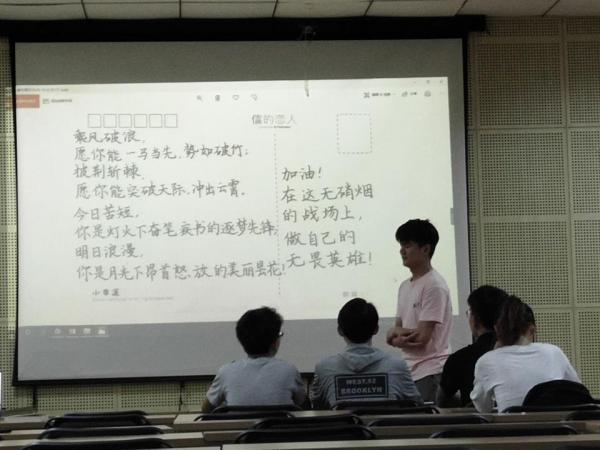 儘的恋人
乘风破浪，
愿你能一马当先，势如破竹；
披荆斩棘，
愿你能突破天际，冲出云霄。
今日苦短，
你是灯火下奋笔疾书的逐梦先锋；
明日浪漫，
你是月光下昂首怒放的美丽昙花！
小幸运
加油！
在这无硝烟
的战场上，
做自己的
无畏英雄！
WEST.52
BROOKLYN